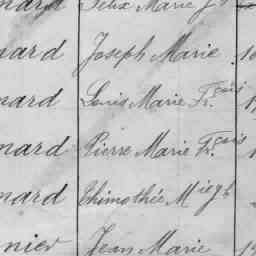 nard Félix Marie J
nard Joseph Marie
nard Louis Marie Fr.çois
nard Pierre Marie Fr.çois
nard Thimothée M
nier Jean Marie